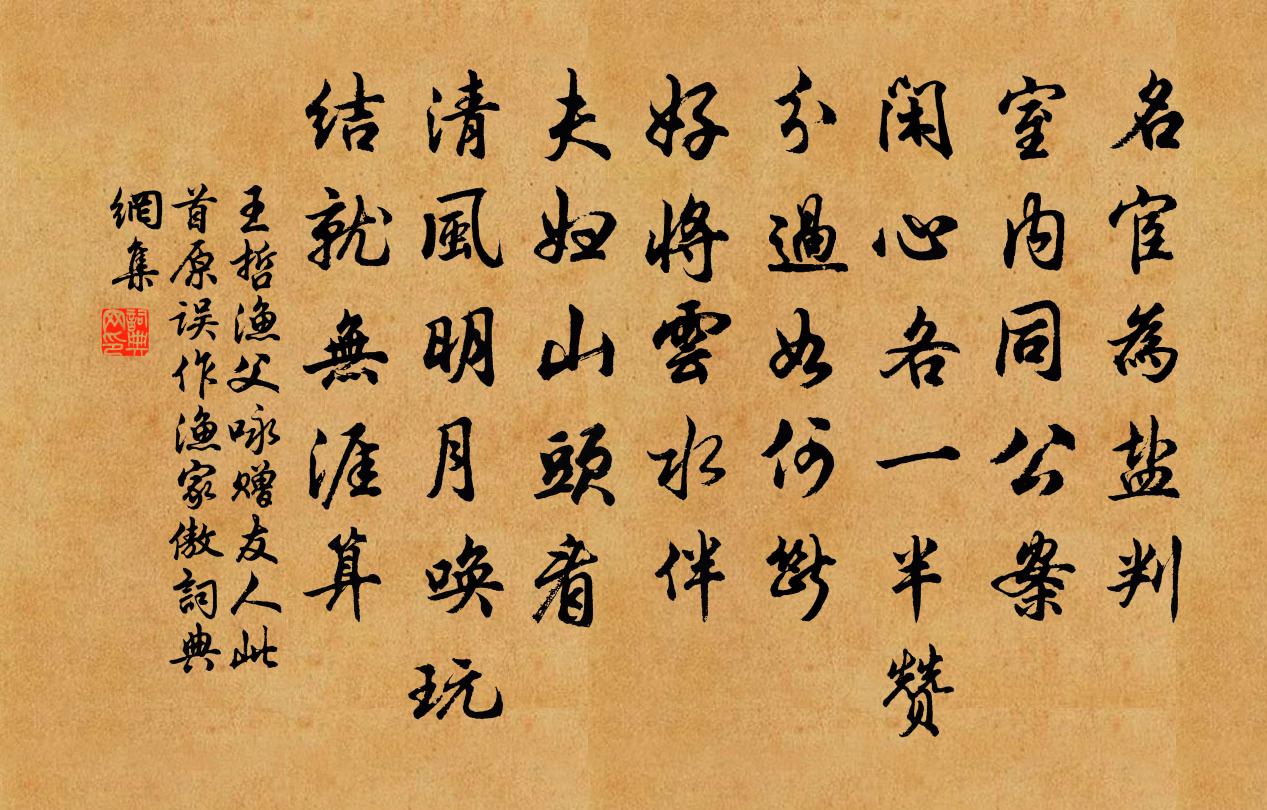 名宦為盐判
室内同公案
闲心各一半赞
分過如何斷
好將雲水伴
夫妇山頭看
清風明月唤玩
结就無涯算
王哲漁父咏赠友人此
首原误作漁家傲詞典
網集
詞典網印